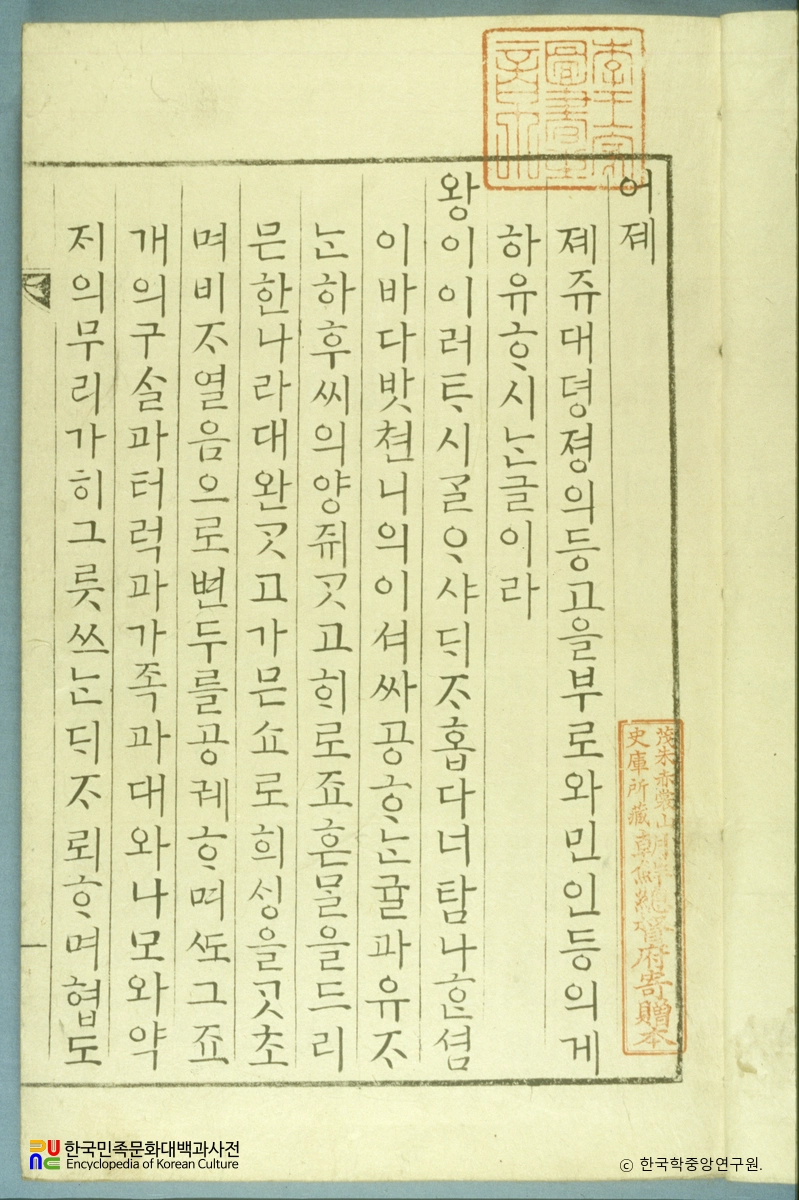 어졔
졔쥬대뎡졍의등고을부로와민인등의게
하유ᄒᆞ시ᄂᆞᆫ글이라
왕이이러ᄐᆞ시ᄀᆞᆯᄋᆞ샤ᄃᆡᄌᆞ홉다너탐나ᄒᆞᆫ셤
이바다밧쳔니의이셔싸공ᄒᆞᄂᆞᆫ귤과유ᄌᆞ
ᄂᆞᆫ하후씨의양쥐ᄀᆞᆺ고희로죠ᄒᆞᆫ믈을드리
믄한나라대완ᄀᆞᆺ고가믄쇼로희싱을ᄀᆞᆺ초
며비ᄌᆞ열음으로변두를공궤ᄒᆞ며ᄯᅩ그죠
개의구살과터럭과가족과대와나모와약
저의무리가히그릇쓰ᄂᆞᆫᄃᆡᄌᆞ뢰ᄒᆞ며협도
茂朱赤裳山
史庫所藏
朝鮮總督府寄贈本
한국민족문화대백과사전
Encyclopedia of Korean Culture
© 한국학중앙연구원.